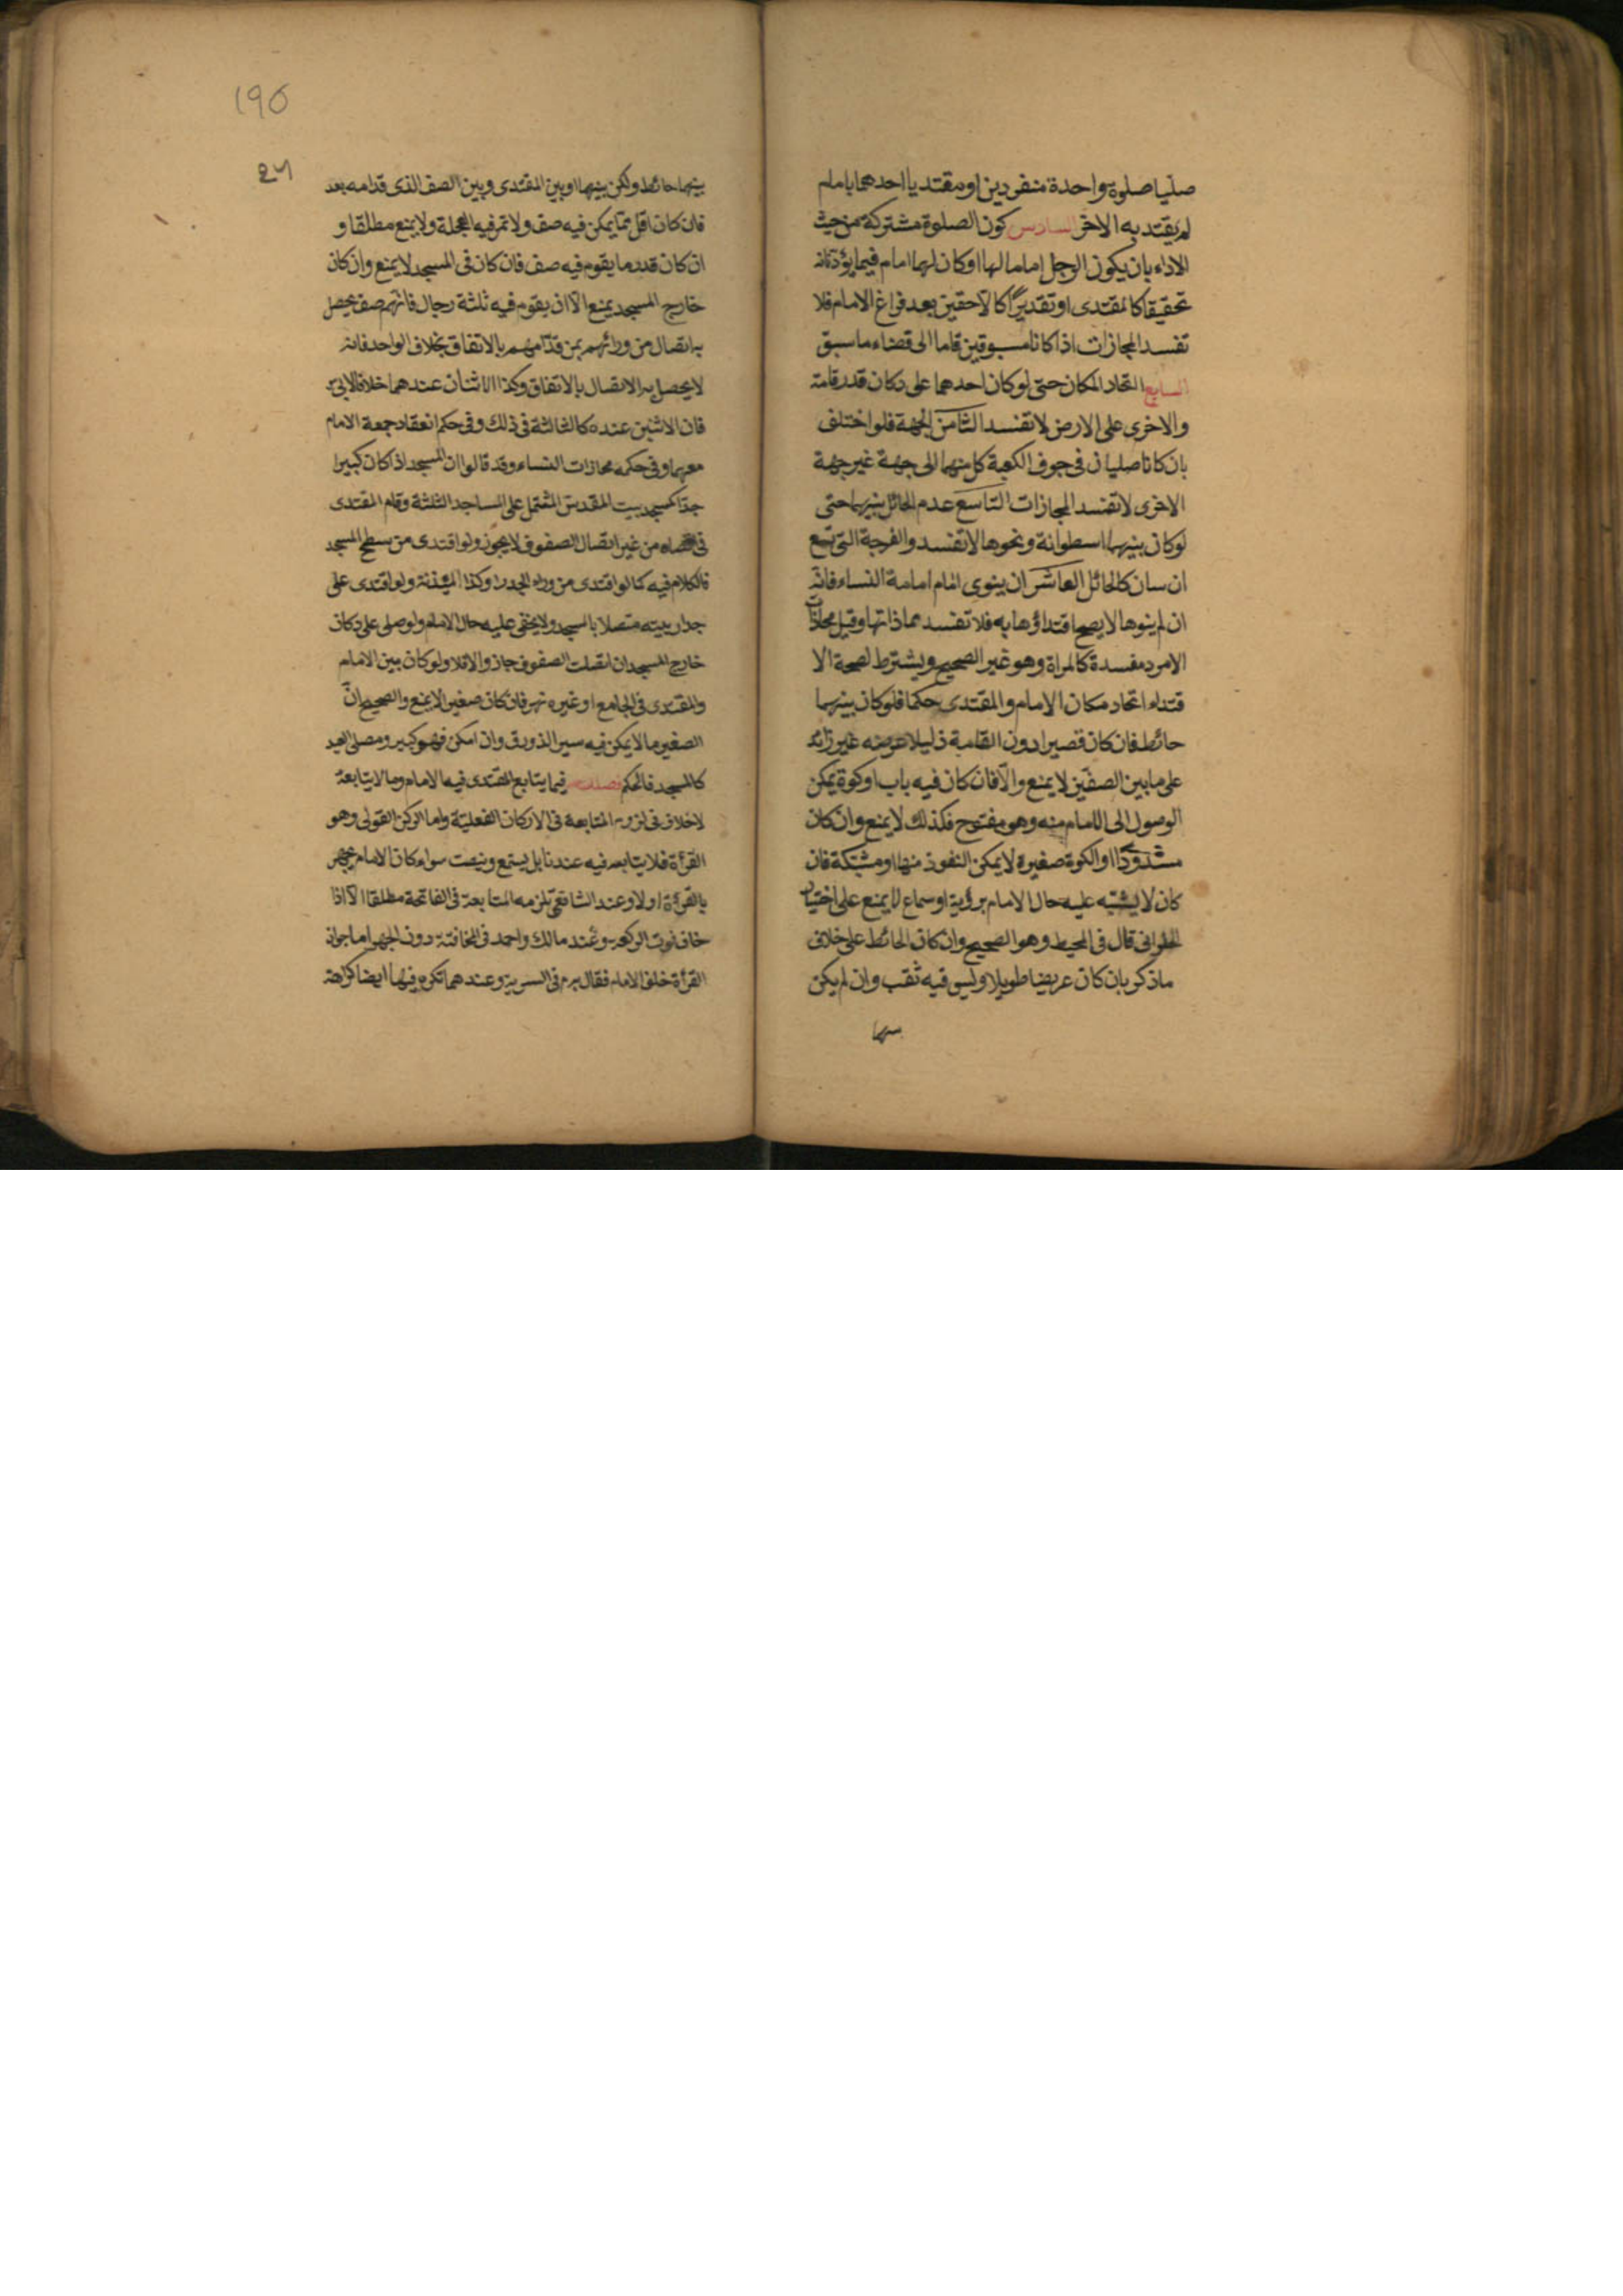 صليا صلوة واحدة منفردين او مقتديا احدهما بامام
لم يقتد به الاخر السادس كون الصلوة مشتركة من حيث
الاداء بان يكون الرجل اماما لها او كان لهما امام فيما يؤديانه
تحقيقا كالمقتدى او تقديرا كالاحقين بعد فراغ الامام فلا
تفسد المحازات اذا كانا مسبوقين قاما الى قضاء ما سبق
السابع اتحاد المكان حتى لو كان احدهما على دكان قدر قامة
والاخرى على الارض لا تفسد الثامن الجهة فلو اختلف
بان كانا صليان في جوف الكعبة كل منهما الى جهة غير جهة
الاخرى لا تفسد المحازات التاسع عدم الحائل بينهما حتى
لو كان بينهما اسطوانة ونحوها لا تفسد والفرجة التي تسع
ان سان كالحائل العاشر ان ينوى امام امامة النساء فانه
ان لم ينوها لا يصح اقتداؤها به فلا تفسد محاذاتها وقيل محاذات
الامرد مفسدة كالمراة وهو غير الصحيح ويشترط لصحة الا
قتداء اتحاد مكان الامام والمقتدى حكما فلو كان بينهما
حائط فان كان قصيرا دون القامة ذليلا عرضه غير زائد
على ما بين الصفين لا يمنع والا فان كان فيه باب او كوة يمكن
الوصول الى الامام منه وهو مفتوح فكذلك لا يمنع وان كان
مسدودا او الكوة صغيرة لا يمكن النفوذ منها او مشبكة فان
كان لا يشتبه عليه حال الامام برؤية او سماع لا يمنع على اختيار
الحلوانى قال في المحيط وهو الصحيح وان كان الحائط على خلاف
ماذكر بان كان عريضا طويلا وليس فيه ثقب وان لم يكن
بينهما
١٩٥
بينهما حائط ولكن بينهما او بين المقتدى وبين الصف الذى قدامه بعد
فان كان اقل مما يمكن فيه صف ولا تمر فيه العجلة ولا يمنع مطلقا و
ان كان قدر ما يقوم فيه صف فان كان في المسجد لا يمنع وان كان
خارج المسجد يمنع الا ان يقوم فيه ثلثة رجال فانهم صف يحصل
به اتصال من ورائهم بمن قدامهم بالاتفاق بخلاف الواحد فانه
لا يحصل به الاتصال بالاتفاق وكذا الاثنان عندهما خلافا لابي
فان الاثنين عنده كالثالثة في ذلك وفي حكم انعقاد جمعة الامام
معهما وفي حكم محازات النساء وقد قالوا ان المسجد اذا كان كبيرا
جدا كمسجد بيت المقدس المشتمل على المساجد الثلثة وقام المقتدى
في اقصاه من غير اتصال الصفوف لا يجوز ولو اقتدى من سطح المسجد
فالكلام فيه كما لو اقتدى من وراء الجدر وكذا المئذنة ولو اقتدى على
جدار بيته متصلا بالمسجد ولا يخفى عليه حال الامام ولو صلى على دكان
خارج المسجد ان اتصلت الصفوف جاز والا فلا ولو كان بين الامام
والمقتدى في الجامع او غيره نهر فان كان صغيرا لا يمنع والصحيح ان
الصغير ما لا يمكن فيه سير الذورق وان امكن فهو كبير ومصلى العيد
كالمسجد في الحكم فصل فيما يتابع المقتدى فيه الامام وما لا يتابعه
لا خلاف في لزوم المتابعة في الاركان الفعلية واما الركن القولى وهو
القرأة فلا يتابعه فيه عندنا بل يستمع وينصت سواء كان الامام يجهر
بالقرءة او لا وعند الشافعي يلزمه المتابعة في الفاتحة مطلقا الا اذا
خاف فوت الركعة وعند مالك واحمد في المخافتة دون الجهر اما جواز
القرأة خلف الامام فقال م في السرية وعندهما تكره فيها ايضا كراهة